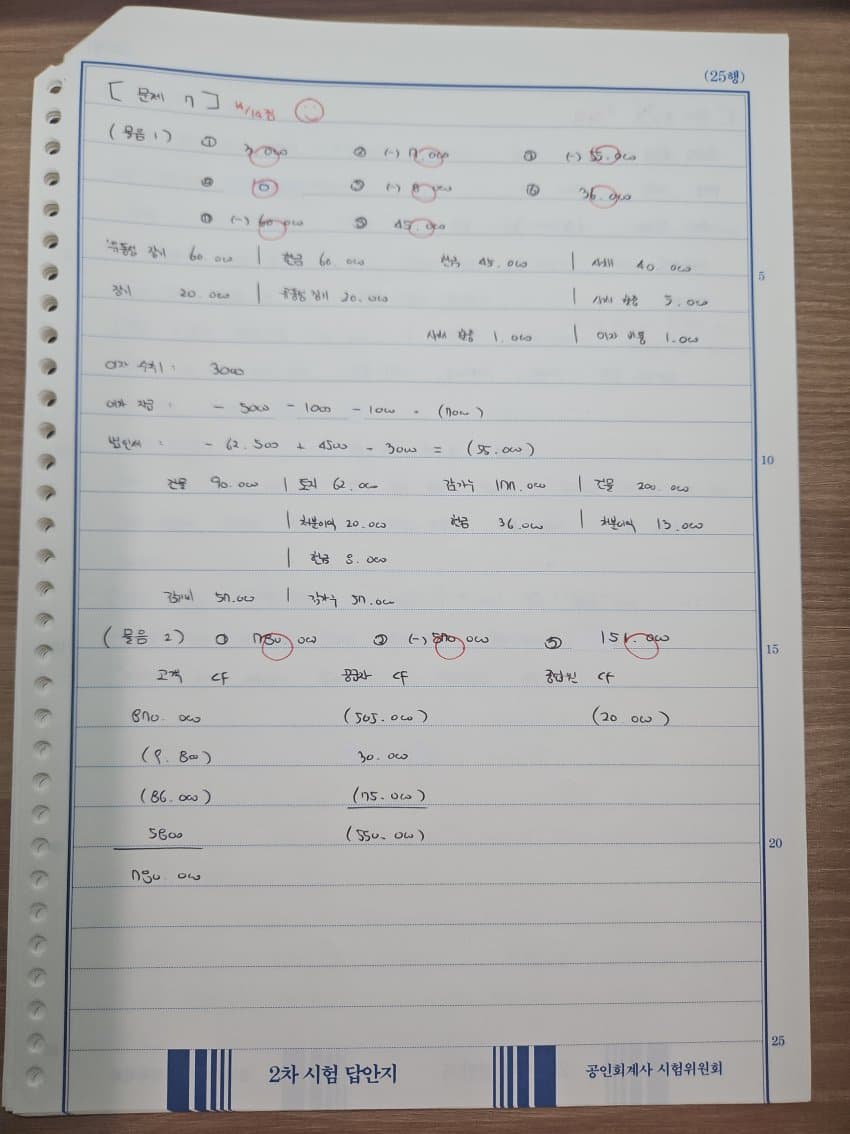 (25행)
[ 문제 7 ] 14/14점
(물음 1) ① 3.000 ② (-) 7.000 ③ (-) 55.000
④ 0 ⑤ (-) 8.000 ⑥ 36.000
⑦ (-) 60.000 ⑧ 45.000
유동성 장차 60.000 | 현금 60.000 현금 45.000 | 사채 40.000
5
장차 20.000 | 유동성 장차 20.000 | 사채 할증 5.000
사채 할증 1.000 | 이자 비용 1.000
이자 수취 : 3000
이자 지급 : - 5000 - 1000 - 1000 = (7000)
법인세 : - 62.500 + 4500 + 3000 = (55.000)
10
건물 90.000 | 토지 62.000 감가누 177.000 | 건물 200.000
| 처분이익 20.000 현금 36.000 | 처분이익 13.000
| 현금 8.000
감가비 57.000 | 감가누 57.000
(물음 2) ① 780.000 ② (-) 550.000 ③ 151.000
15
고객 CF 공급자 CF 종업원 CF
870.000 (505.000) (20.000)
(9.800) 30.000
(86.000) (75.000)
5800 (550.000)
20
780.000
25
2차 시험 답안지
공인회계사 시험위원회